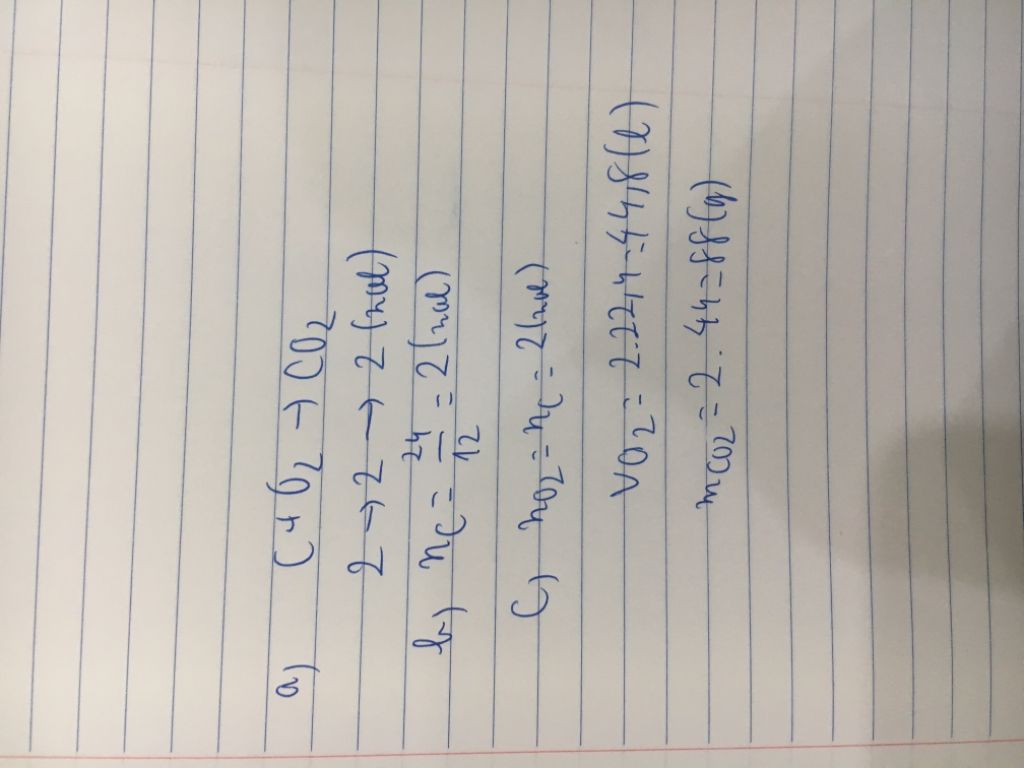 a) C + O2 → CO2
2 → 2 → 2 (mol)
b) nC = 24/12 = 2 (mol)
c) nO2 = nC = 2 (mol)
VO2 = 2.22,4 = 44,8 (l)
mCO2 = 2 . 44 = 88 (g)